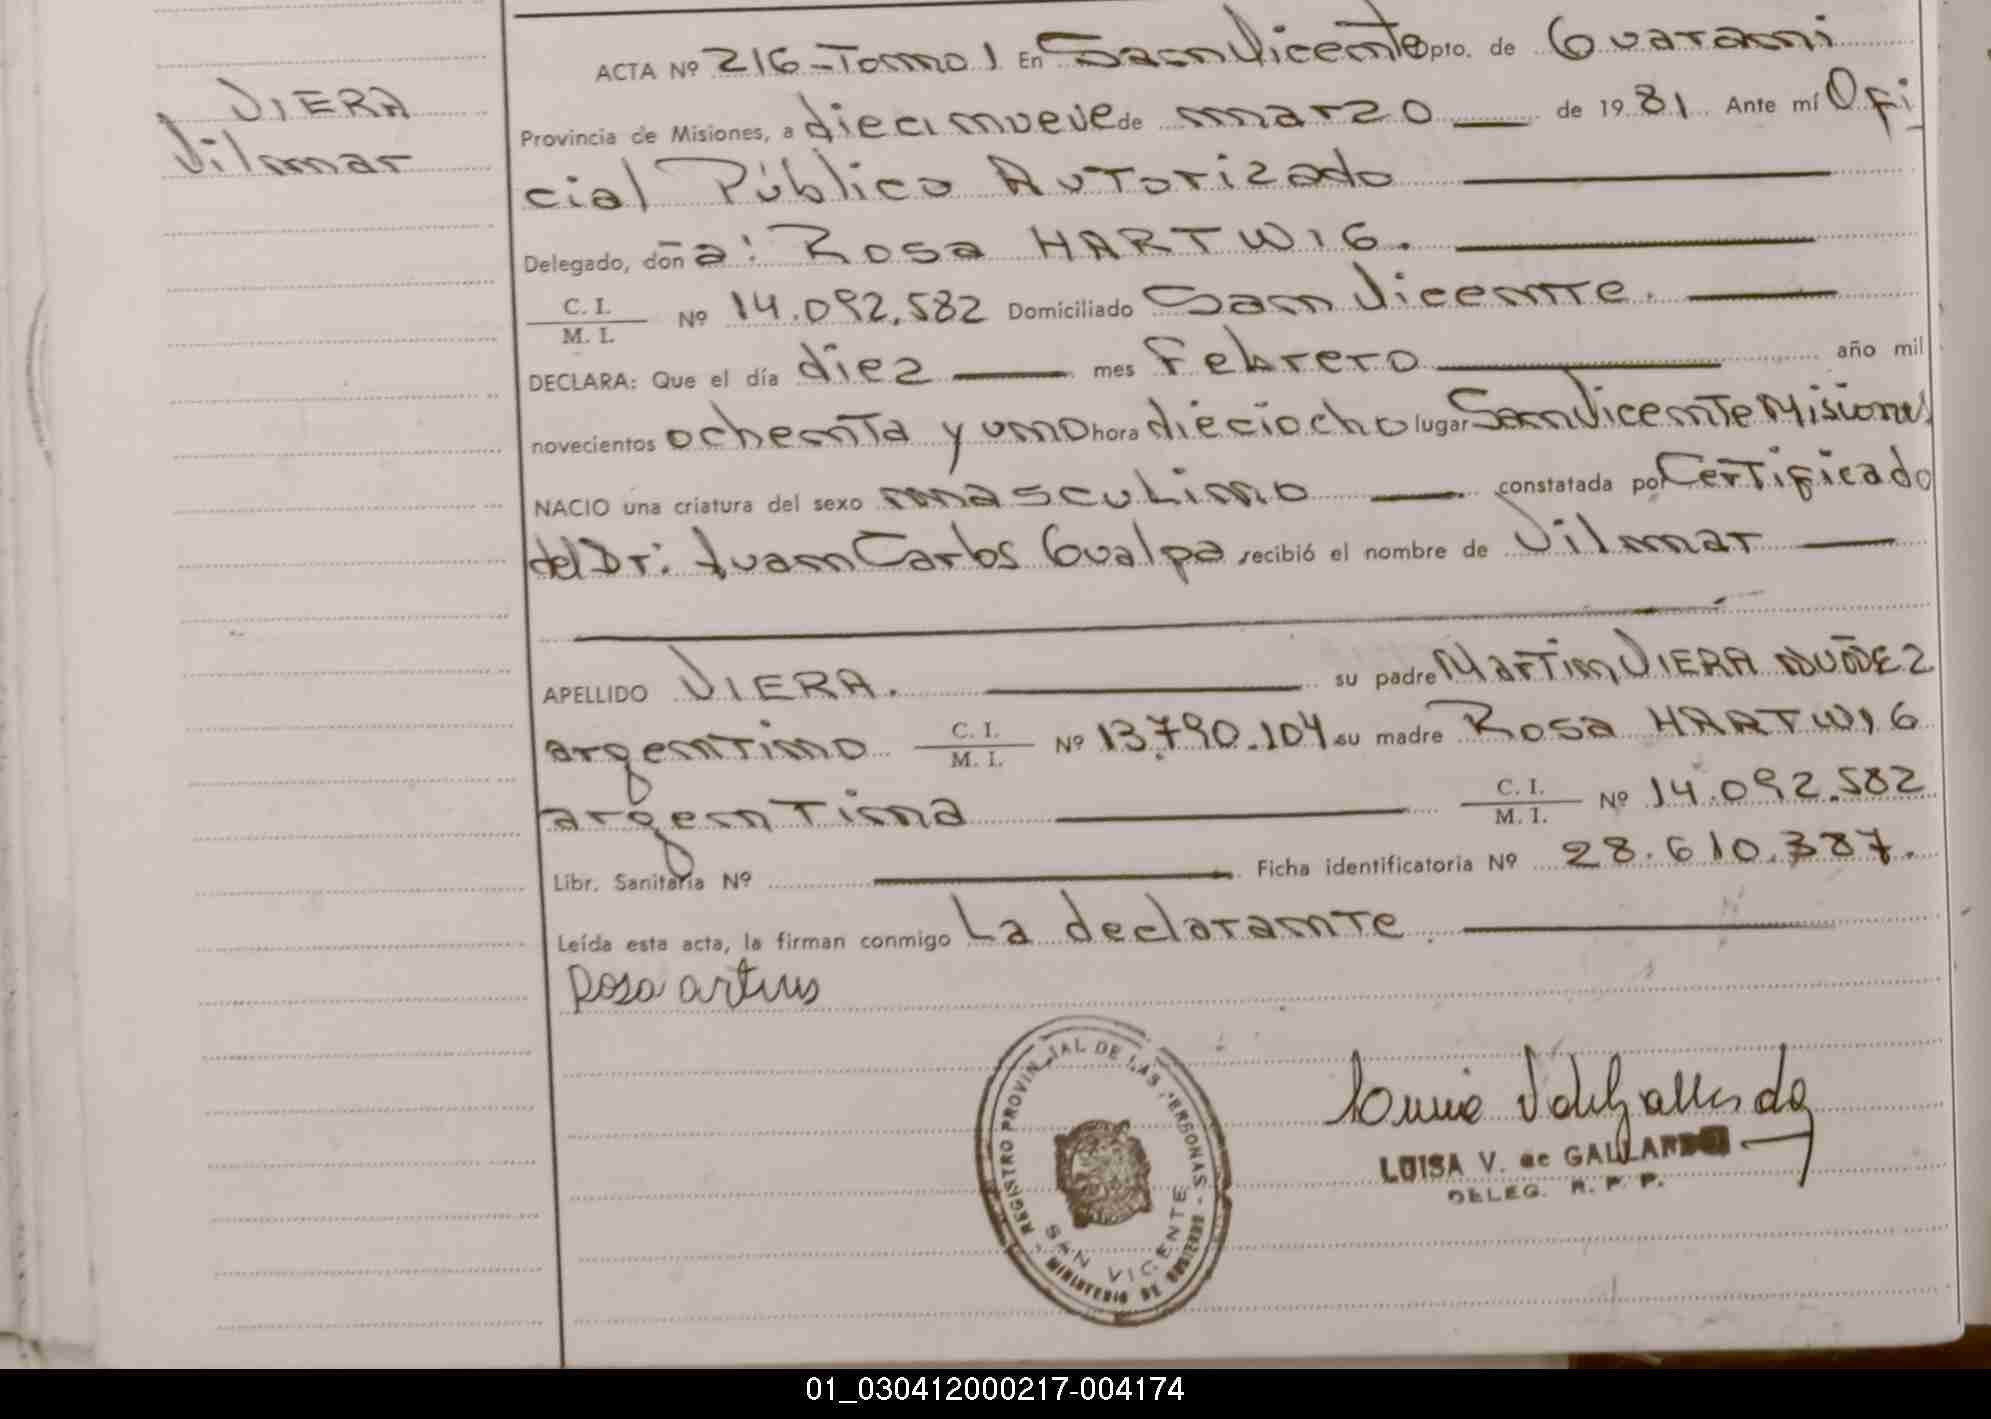 VIERA
Vilmar
ACTA Nº 216-Tomo 1 En San Vicente Dpto. de Guarani
Provincia de Misiones, a diecinueve de marzo de 1981 Ante mí Ofi
cial Público Autorizado
Delegado, doña: Rosa HARTWIG.
C. I.
M. I. Nº 14.092.582 Domiciliado San Vicente.
DECLARA: Que el día diez mes Febrero año mil
novecientos ochenta y uno hora dieciocho lugar San Vicente Misiones
NACIO una criatura del sexo masculino constatada por Certificado
del Dr: Juan Carlos Gualpa recibió el nombre de Vilmar
APELLIDO VIERA. su padre Martin VIERA NUÑEZ
argentino C. I.
M. I. Nº 13.790.104 su madre Rosa HARTWIG
argentina C. I.
M. I. Nº 14.092.582
Libr. Sanitaria Nº Ficha identificatoria Nº 28.610.387.
Leída esta acta, la firman conmigo La declarante.
Rosa artvis
REGISTRO PROVINCIAL DE LAS PERSONAS -
SAN VICENTE
MINISTERIO DE
LUISA V. de GALLARDO
DELEG. R. P. P.
01_030412000217-004174